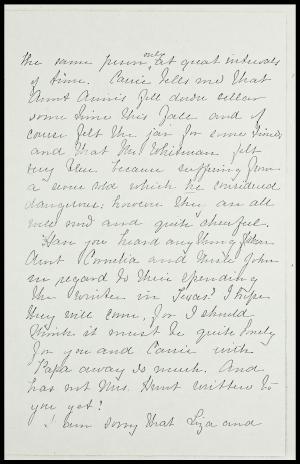 the same person only at great intervals
of time. Carrie tells me that
Aunt Annis fell down cellar
some time this Fall and of
course felt the jar for some time,
and that Mr. Whitman felt
very blue because suffering from
a severe cold which he considered
dangerous; however they are all
well now and quite cheerful.
Have you heard anything from
Aunt Cornelia and Uncle John
in regard to their spending
the winter in Texas? I hope
they will come, for I should
think it must be quite lonely
for you and Carrie with
Papa away so much. And
has not Mrs. Hunt written to
you yet?
I am sorry that Liza and